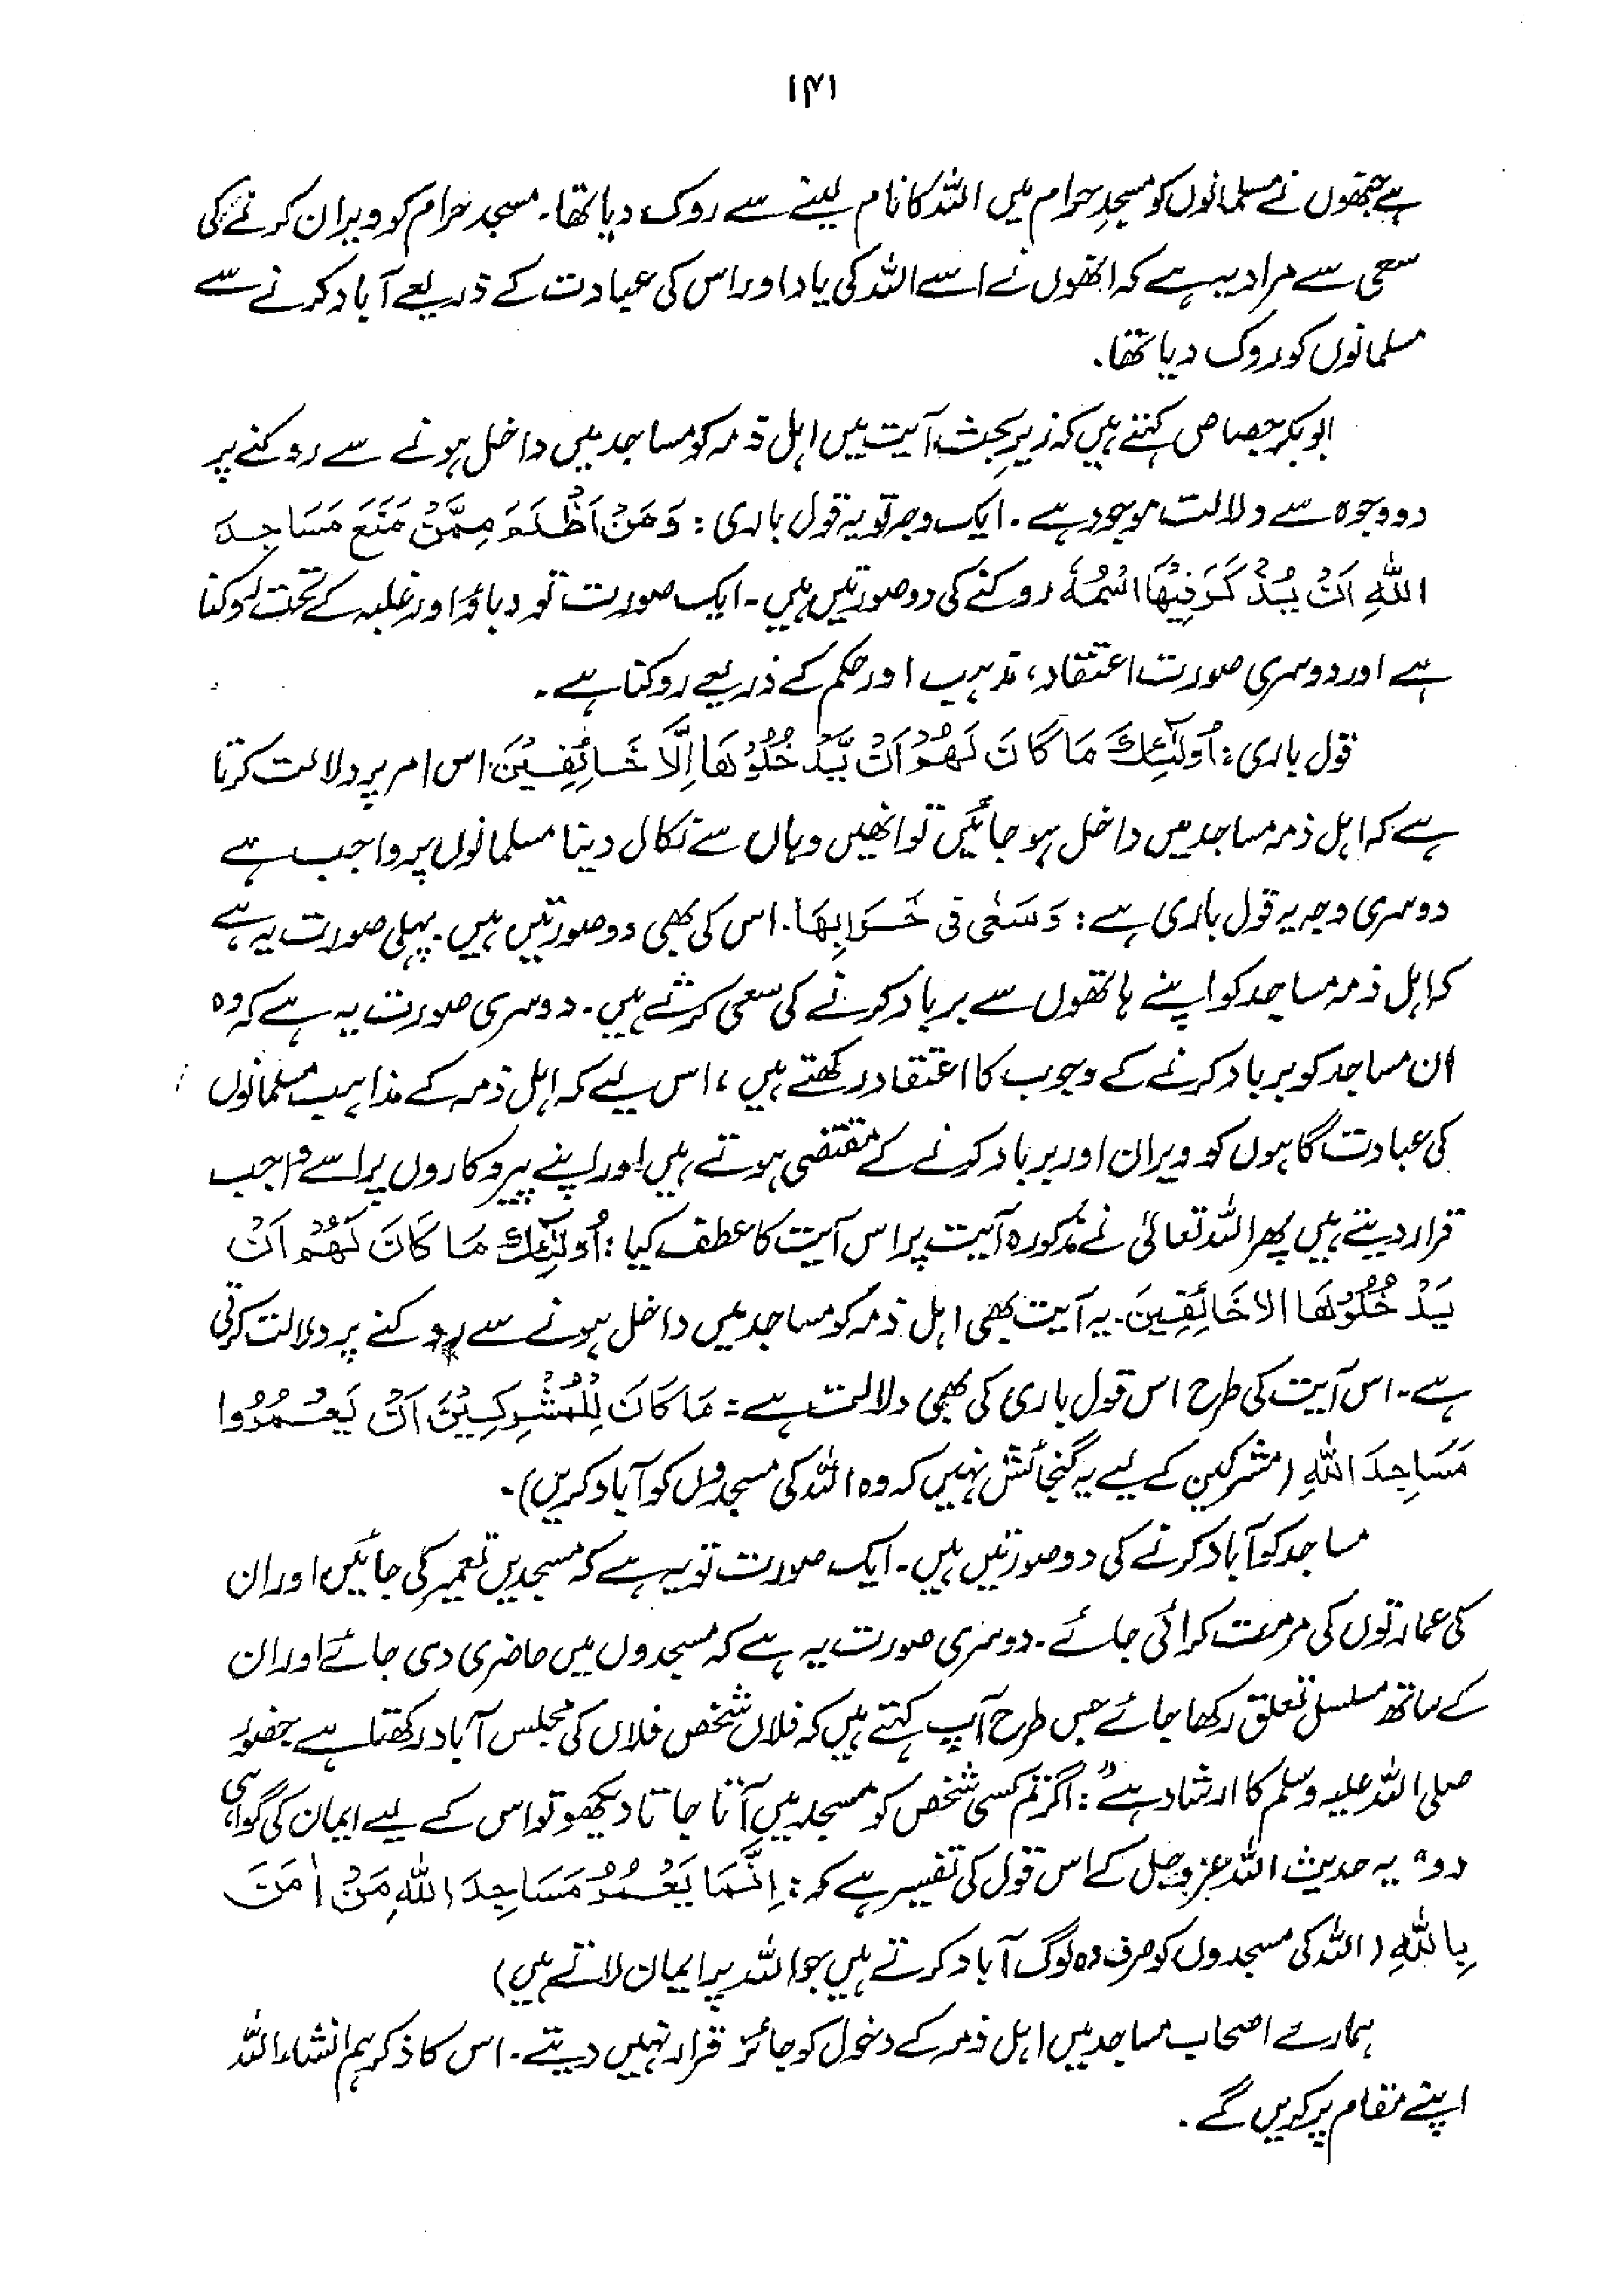 ۱۴۱
ہے جنھوں نے مسلمانوں کو مسجدِ حرام میں اللہ کا نام لینے سے روک دیا تھا۔ مسجد حرام کو ویران کرنے کی
سعی سے مراد یہ ہے کہ انھوں نے اسے اللہ کی یاد اور اس کی عبادت کے ذریعے آباد کرنے سے
مسلمانوں کو روک دیا تھا۔
ابو بکر جصاص کہتے ہیں کہ زیرِ بحث آیت میں اہل ذمہ کو مساجد میں داخل ہونے سے روکنے پر
دو وجوہ سے دلالت موجود ہے۔ ایک وجہ تو یہ قول باری: وَمَنْ اَظْلَمَ مِمَّنْ مَنَعَ مَسَاجِدَ
اللّٰہِ اَنْ یُذْکَرَ فِیْھَا اسْمُہٗ روکنے کی دو صورتیں ہیں۔ ایک صورت تو دباؤ اور غلبہ کے تحت روکنا
ہے اور دوسری صورت اعتقاد، مذہب اور حکم کے ذریعے روکنا ہے۔
قول باری: اُولٰٓئِکَ مَا کَانَ لَھُمْ اَنْ یَّدْخُلُوْھَا اِلَّا خَائِفِیْنَ اس امر پر دلالت کرتا
ہے کہ اہل ذمہ مساجد میں داخل ہو جائیں تو انھیں وہاں سے نکال دینا مسلمانوں پر واجب ہے
دوسری وجہ یہ قول باری ہے: وَسَعٰی فی خَرَابِھَا۔ اس کی بھی دو صورتیں ہیں۔ پہلی صورت یہ ہے
کہ اہل ذمہ مساجد کو اپنے ہاتھوں سے برباد کرنے کی سعی کرتے ہیں۔ دوسری صورت یہ ہے کہ وہ
ان مساجد کو برباد کرنے کے وجوب کا اعتقاد رکھتے ہیں، اس لیے کہ اہل ذمہ کے مذاہب مسلمانوں
کی عبادت گاہوں کو ویران اور برباد کرنے کے مقتضی ہوتے ہیں اور اپنے پیروکاروں پر اسے واجب
قرار دیتے ہیں پھر اللہ تعالیٰ نے مذکورہ آیت پر اس آیت کا عطف کیا: اُولٰٓئِکَ مَا کَانَ لَھُمْ اَنْ
یَدْخُلُوْھَا الا خَائِفِینَ۔ یہ آیت بھی اہل ذمہ کو مساجد میں داخل ہونے سے روکنے پر دلالت کرتی
ہے۔ اس آیت کی طرح اس قول باری کی بھی دلالت ہے: مَا کَانَ لِلْمُشْرِکِیْنَ اَنْ یَعْمُرُوا
مَسَاجِدَ اللّٰہِ (مشرکین کے لیے یہ گنجائش نہیں کہ وہ اللہ کی مسجدوں کو آباد کریں)۔
مساجد کو آباد کرنے کی دو صورتیں ہیں۔ ایک صورت تو یہ ہے کہ مسجدیں تعمیر کی جائیں اور ان
کی عمارتوں کی مرمت کرائی جائے۔ دوسری صورت یہ ہے کہ مسجدوں میں حاضری دی جائے اور ان
کے ساتھ مسلسل تعلق رکھا جائے جس طرح آپ کہتے ہیں کہ فلاں شخص فلاں کی مجلس آباد رکھتا ہے حضور
صلی اللہ علیہ وسلم کا ارشاد ہے: "اگر تم کسی شخص کو مسجد میں آتا جاتا دیکھو تو اس کے لیے ایمان کی گواہی
دو" یہ حدیث اللہ عزوجل کے اس قول کی تفسیر ہے کہ: اِنَّمَا یَعْمُرُ مَسَاجِدَ اللّٰہِ مَنْ اٰمَنَ
بِاللّٰہِ (اللہ کی مسجدوں کو صرف وہ لوگ آباد کرتے ہیں جو اللہ پر ایمان لاتے ہیں)
ہمارے اصحاب مساجد میں اہل ذمہ کے دخول کو جائز قرار نہیں دیتے۔ اس کا ذکر ہم انشاء اللہ
اپنے مقام پر کریں گے۔